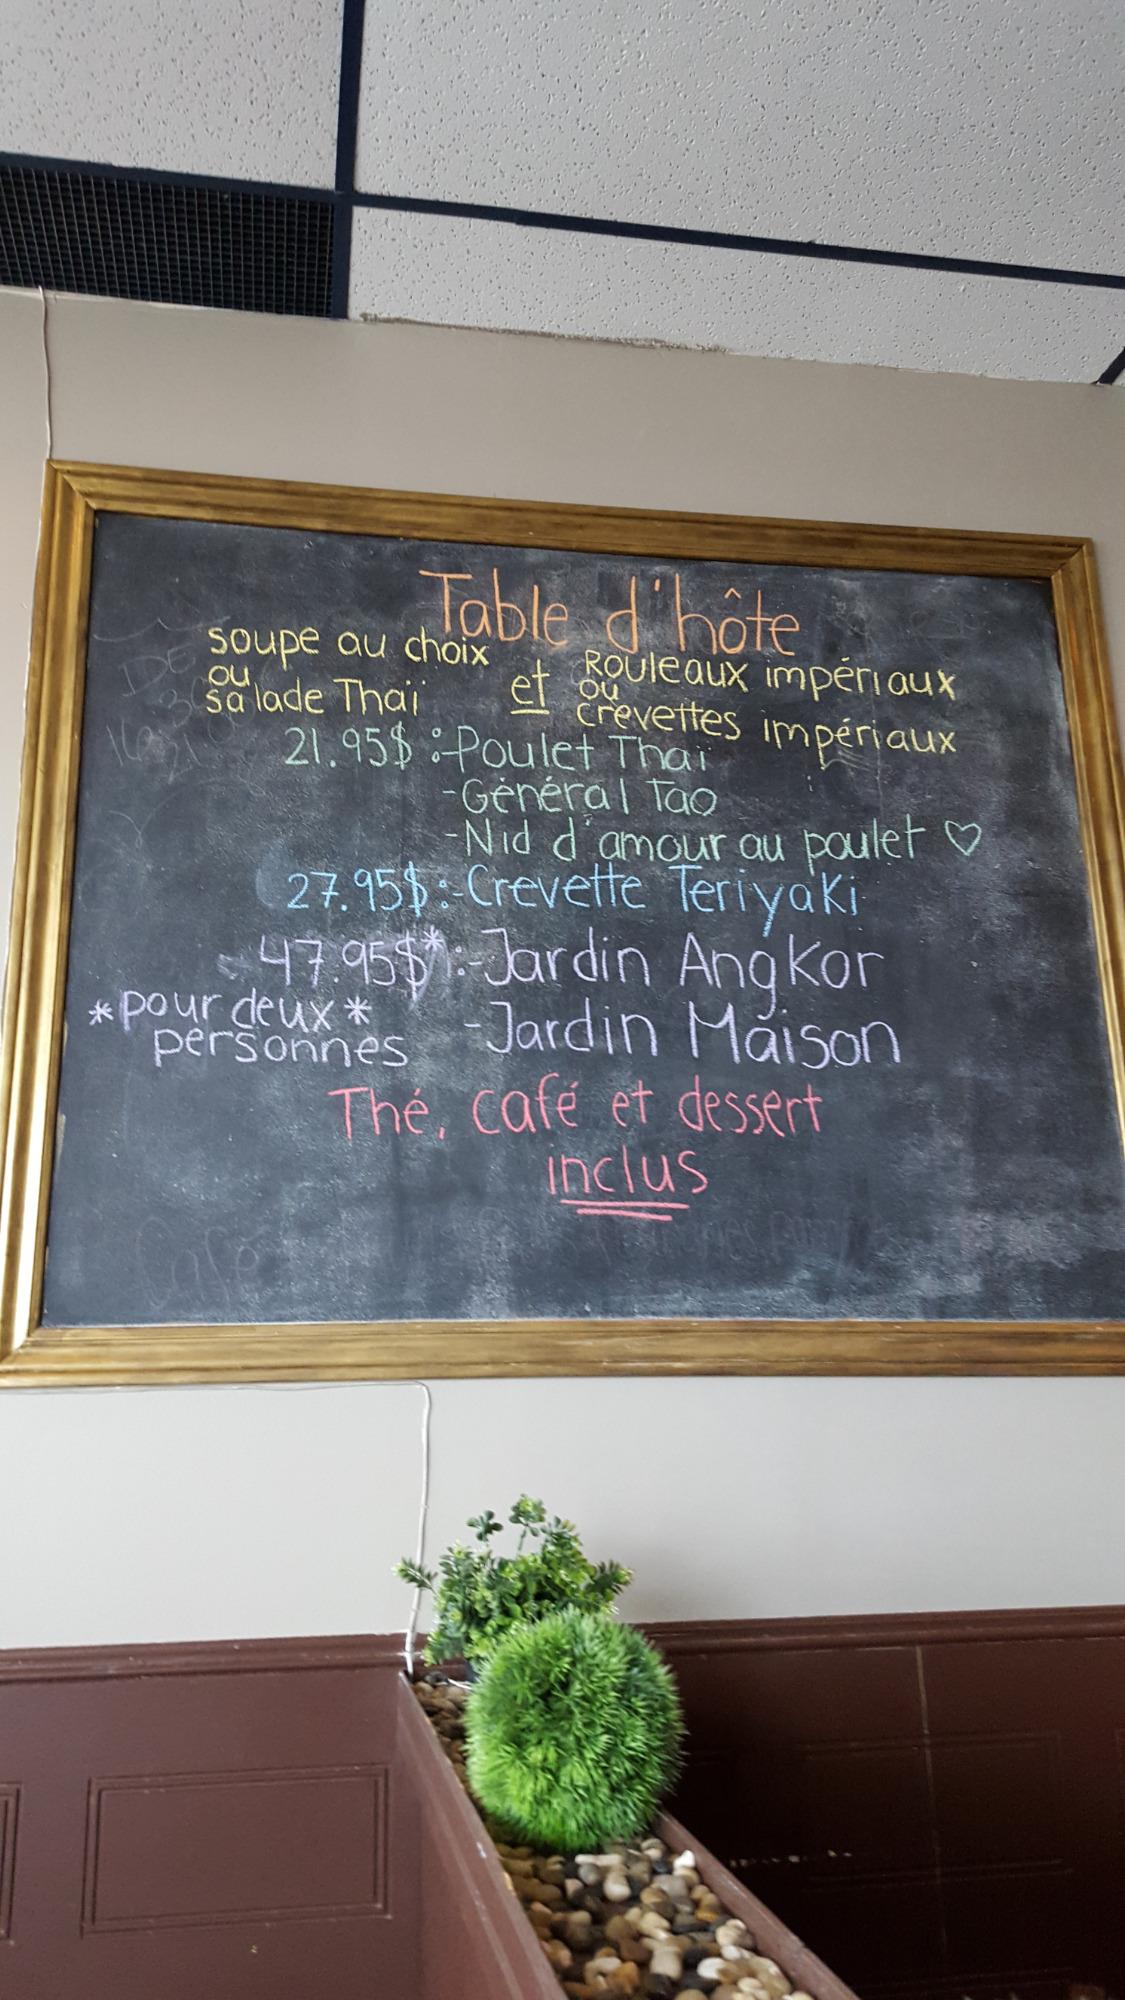 Table d'hôte
soupe au choix
ou
salade Thaï
et
Rouleaux impériaux
ou
crevettes impériaux
21.95$ :-Poulet Thaï
-Général Tao
-Nid d'amour au poulet ♡
27.95$:-Crevette Teriyaki
47.95$*:-Jardin Angkor
*pour deux*
personnes
-Jardin Maison
Thé, café et dessert
inclus
Café